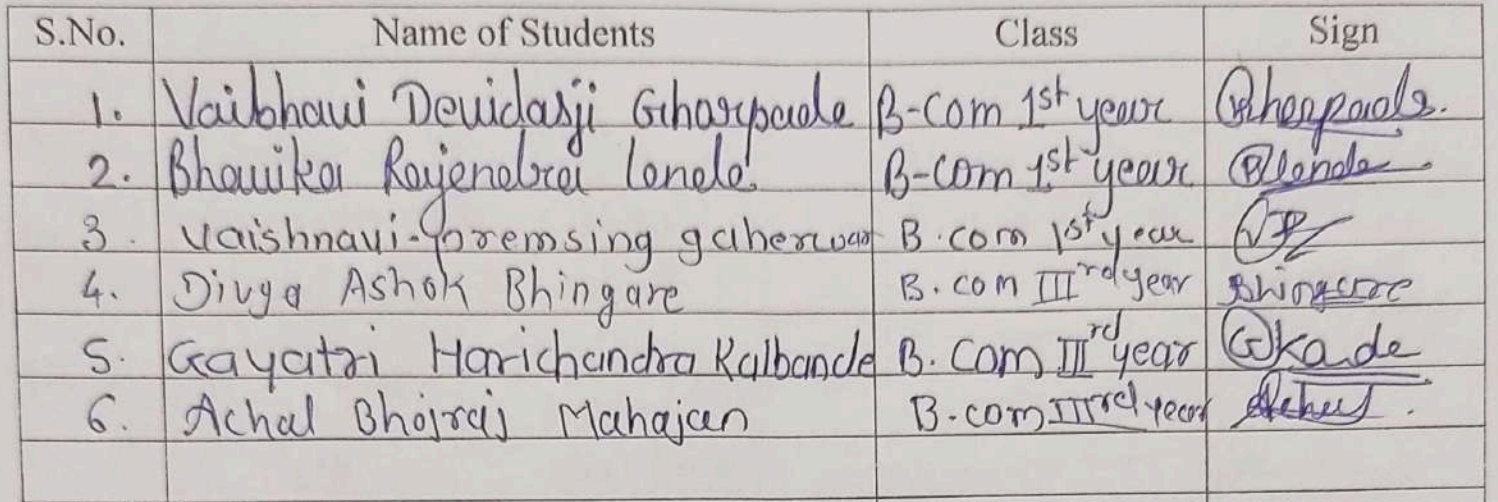 S.No. Name of Students Class Sign
1. Vaibhavi Devidasji Gharpade B-Com 1st year Gharpade.
2. Bhavika Rajendra Londe. B-Com 1st year BLonde
3. Vaishnavi-premsing gaherwar B.com 1st year
4. Divya Ashok Bhingare B.com IIIrd year Bhingare
5. Gayatri Harichandra Kalbande B.Com IIIrd year Gkade
6. Achal Bhojraj Mahajan B.com IIIrd year